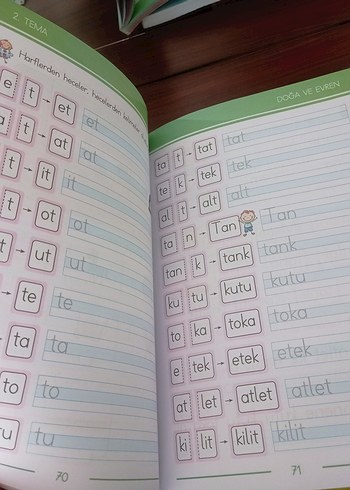 2. TEMA
Harflerden heceler, hecelerden
e t → et et
a t → at at
t → it it
t → ot ot
t → ut ut
→ te te
→ ta ta
→ to to
→ tu tu
70
DOĞA VE EVREN
ta t → tat tat
te k → tek tek
al t → alt alt
ta n → Tan Tan
tan k → tank tank
ku tu → kutu kutu
to ka → toka toka
e tek → etek etek
at let → atlet atlet
ki lit → kilit kilit
71